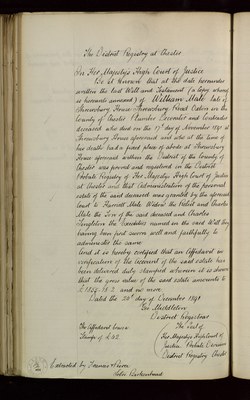 The District Registry at Chester
In Her Majesty's High Court of Justice
Be it Known that at the date hereunder
written the last Will and Testament (a copy whereof
is hereunto annexed) of William Male late of
Shrewsbury House Shrewsbury Road Oxton in the
County of Chester Plumber Decorator and Contractor
deceased who died on the 17th of November 1891 at
Shrewsbury House aforesaid and who at the time of
his death had a fixed place of abode at Shrewsbury
House aforesaid within the District of the County of
Chester was proved and registered in the District
Probate Registry of Her Majesty's High Court of Justice
at Chester and that Administration of the personal
estate of the said deceased was granted by the aforesaid
Court to Harriett Male Widow the Relict and Charles
Male the Son of the said deceased and Charles
Singleton the Executors named in the said Will they
having been first sworn well and faithfully to
administer the same
And it is hereby certified that an Affidavit in
verification of the Account of the said estate has
been delivered duly stamped wherein it is shewn
that the gross value of the said estate amounts to
and no more
Dated the day of December 1891
District Registrar
The Affidavit bears
Stamp of
The Seal of
Her Majesty's High Court of
Justice Probate Division
District Registry Chester
Extracted by
Solr Birkenhead